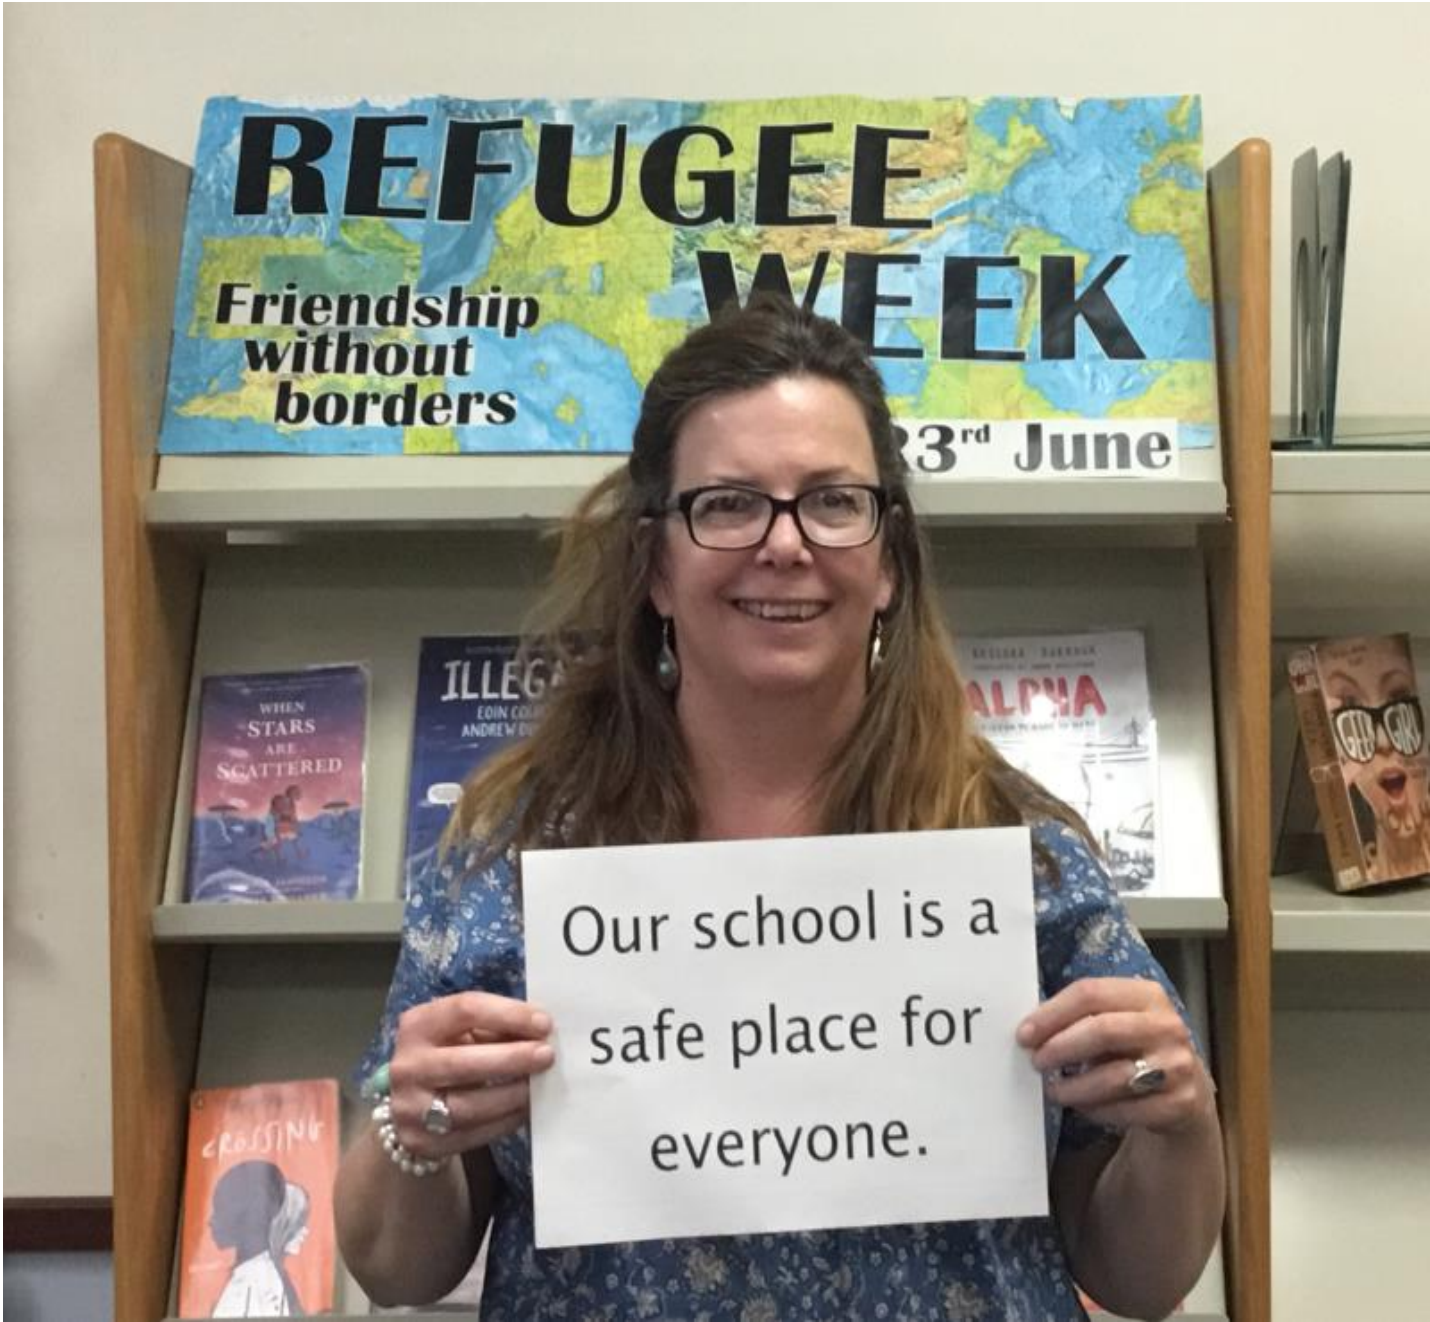 REFUGEE
WEEK
Friendship
without
borders
3rd June
WHEN
STARS
ARE
SCATTERED
EOIN
ANDREW
ALPHA
GEEK GIRL
CROSSING
Our school is a
safe place for
everyone.